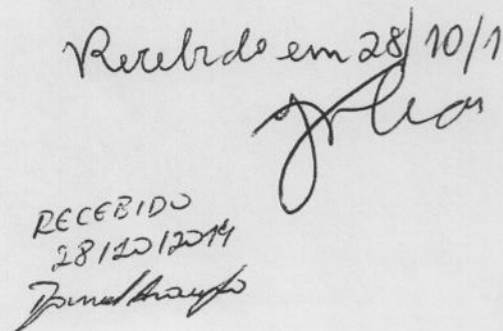 Recebido em 28/10/1
RECEBIDO
28/10/2014